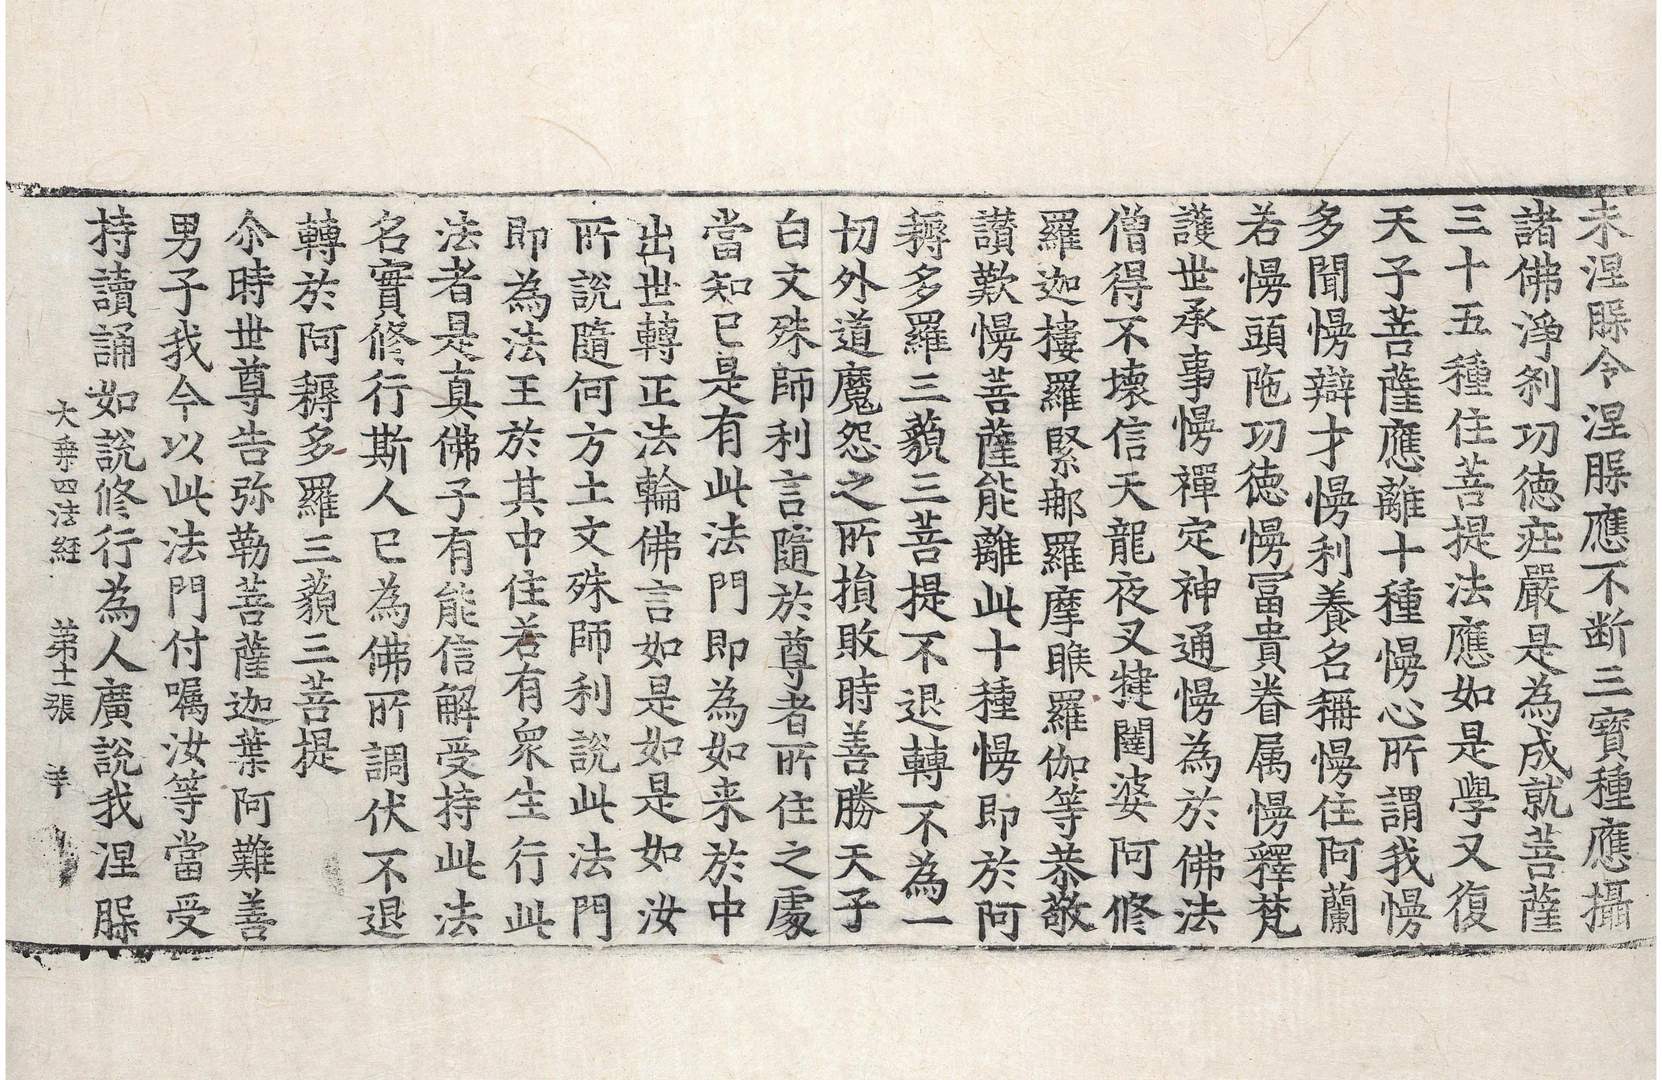 未涅槃令涅槃應不断三寳種應攝
諸佛淨刹功徳莊嚴是為成就菩薩
三十五種住菩提法應如是學又復
天子菩薩應離十種慢心所謂我慢
多聞慢辯才慢利養名稱慢住阿蘭
若慢頭陁功徳慢冨貴眷属慢釋梵
護世承事慢禪定神通慢為於佛法
僧得不壞信天龍夜叉揵闥婆阿修
羅迦樓羅緊那羅摩睺羅伽等恭敬
讃歎慢菩薩能離此十種慢即於阿
耨多羅三藐三菩提不退轉不為一
切外道魔怨之所損敗時善勝天子
白文殊師利言隨於尊者所住之處
當知已是有此法門即為如来於中
出世轉正法輪佛言如是如是如汝
所說隨何方土文殊師利說此法門
即為法王於其中住若有衆生行此
法者是真佛子有能信解受持此法
名實修行斯人已為佛所調伏不退
轉於阿耨多羅三藐三菩提
尒時世尊告弥勒菩薩迦葉阿難善
男子我今以此法門付囑汝等當受
持讀誦如說修行為人廣說我涅槃
大乗四法経 第十一張 羊